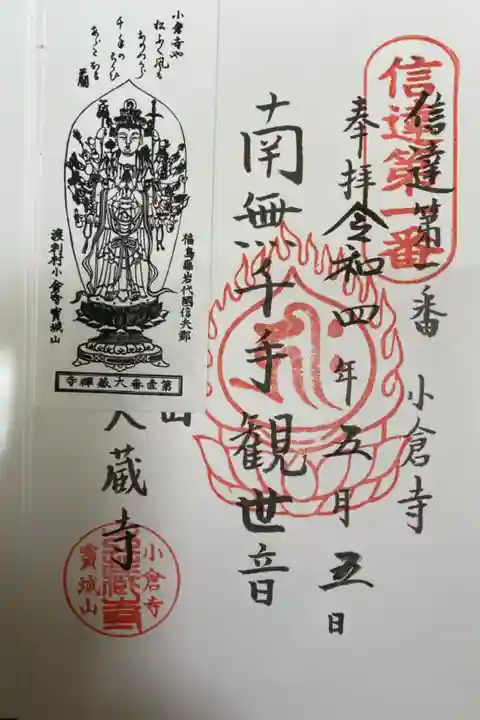 信達第一番
信達第一番 小倉寺
奉拝 令和四年五月五日
南無千手観世音
山
大蔵寺
小倉寺
大蔵寺
寳城山
小倉寺や
松ふく風も
千手の
福島縣岩代國信夫郡
渡利村小倉寺寳城山
第壹番大蔵禪寺